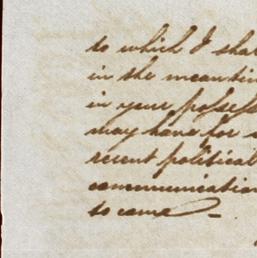 to which I shal
in the meantim
in your possess
may have for a
recent political
communication
to come –